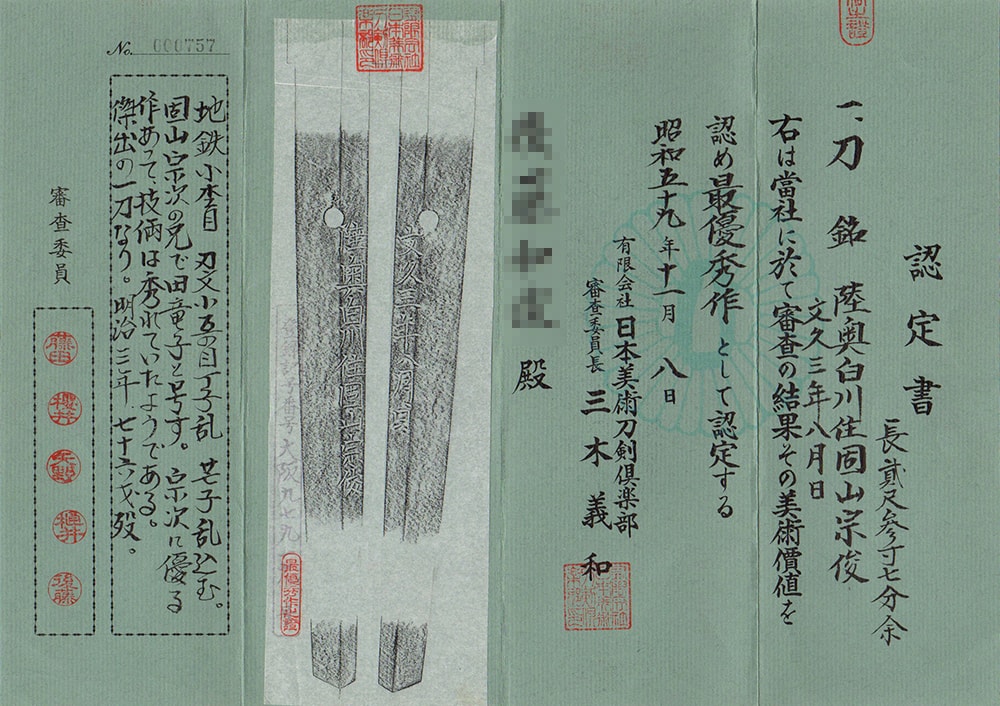 認定書
長貳尺参寸七分余
一、刀 銘 陸奥白川住固山宗俊
文久三年八月日
右は當社に於て審査の結果その美術價値を
認め最優秀作として認定する
昭和五十九年十一月八日
有限会社 日本美術刀剣倶楽部
審査委員長 三木義和
殿
文久三年八月日
陸奥白川住固山宗俊
最優秀作之証
No. 000757
地鉄小杢目 刃文小五目丁子乱 茫子乱込む。
固山宗次の兄で田竜子と号す。宗次に優る
作あって、技倆は秀れていたようである。
傑出の一刀なり。明治三年、七十六才歿。
審査委員
藤田
櫻井
後藤